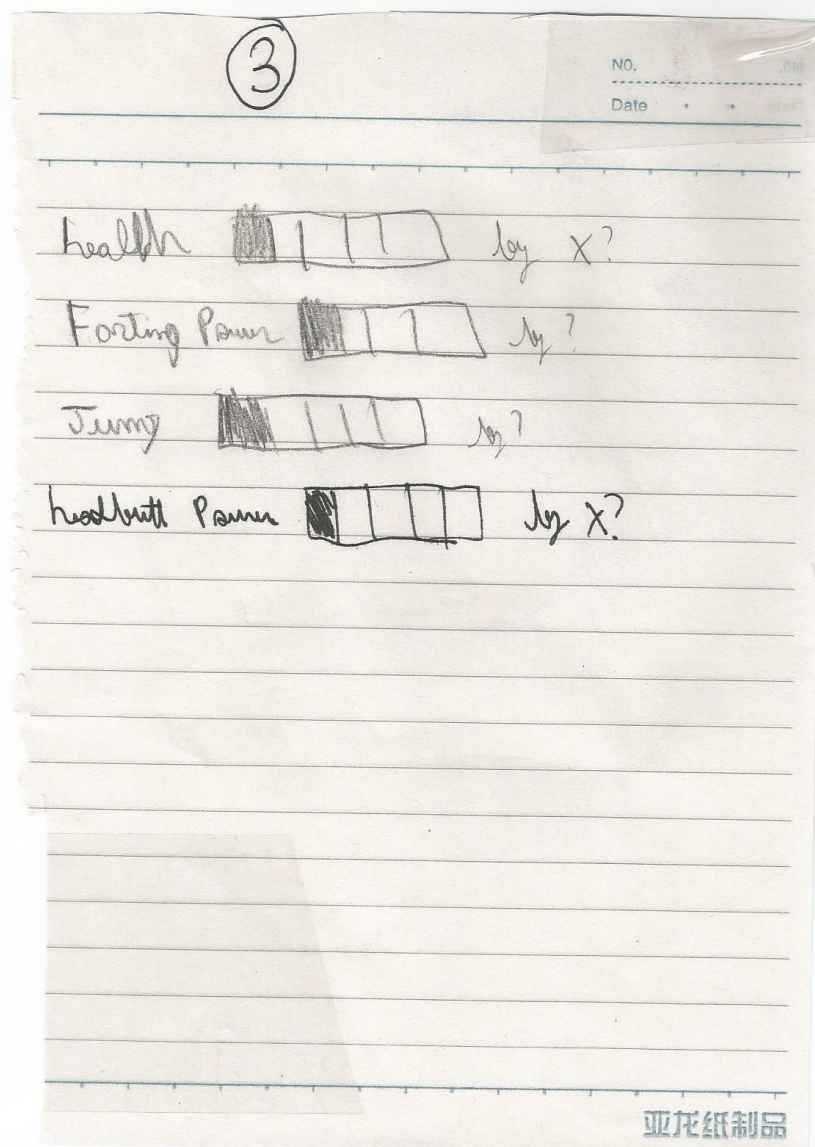 3
NO.
Date
health by X?
Farting Power by?
Jump by?
headbutt Power by X?
亚龙纸制品